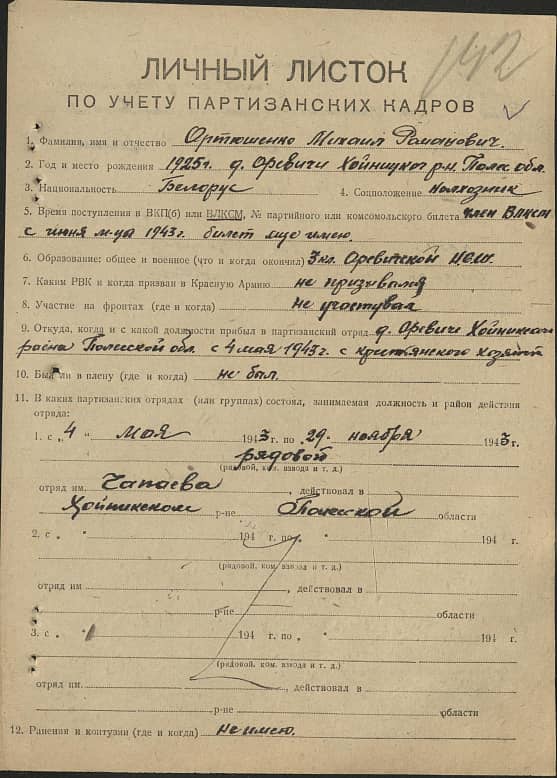 142
ЛИЧНЫЙ ЛИСТОК
ПО УЧЕТУ ПАРТИЗАНСКИХ КАДРОВ
1. Фамилия, имя и отчество Ортюшенко Михаил Романович.
2. Год и место рождения 1925 г. д. Оревичи Хойницкого р-н. Полес. обл.
3. Национальность Белорус 4. Соцположение колхозник
5. Время поступления в ВКП(б) или ВЛКСМ, № партийного или комсомольского билета член ВЛКСМ
с июня м-ца 1943 г. билет имею.
6. Образование: общее и военное (что и когда окончил) 3 кл. Оревичской
7. Каким РВК и когда призван в Красную Армию не призывался
8. Участие на фронтах (где и когда) не участвовал
9. Откуда, когда и с какой должности прибыл в партизанский отряд д. Оревичи Хойникского
района Полесской обл. с 4 мая 1943 г. с крестьянского хозяйст
10. Был ли в плену (где и когда) не был.
11. В каких партизанских отрядах (или группах) состоял, занимаемая должность и район действия
отряда:
1. с „ 4 " мая 1943 г. по " 29 " ноября 1943 г.
рядовой
(рядовой, ком. взвода и т. д.)
отряд им. Чапаева, действовал в
Хойникском р-не Полесской области
2. с „ " 194 г. по „ " 194 г.
(рядовой, ком. взвода и т. д.)
отряд им. , действовал в
р-не области
3. с „ " 194 г. по „ " 194 г.
(рядовой, ком. взвода и т. д.)
отряд им. , действовал в
р-не области
12. Ранения и контузии (где и когда) не имею.